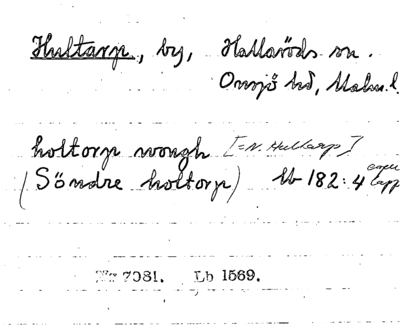 Hultarp, by, Hallaröds sn.
Onsjö hd, Malm. l.
holtorp nongh [= N. Hultarp]
(Söndre holtorp) lb 182:4
7081. Lb 1569.